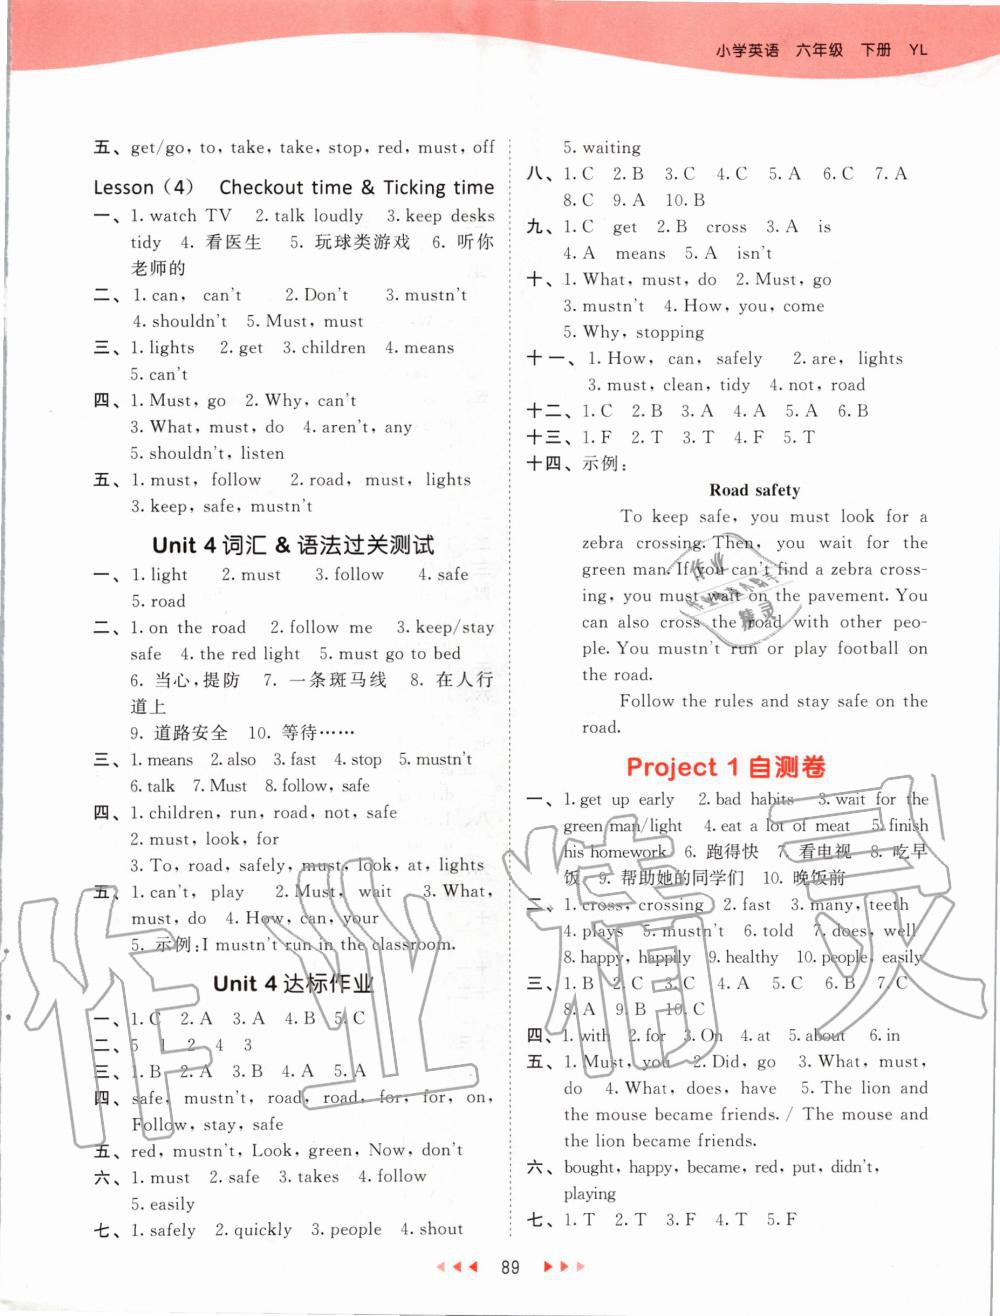 小学英语 六年级 下册 YL
五、get/go, to, take, take, stop, red, must, off
Lesson（4） Checkout time & Ticking time
一、1. watch TV 2. talk loudly 3. keep desks
tidy 4. 看医生 5. 玩球类游戏 6. 听你
老师的
二、1. can, can't 2. Don't 3. mustn't
4. shouldn't 5. Must, must
三、1. lights 2. get 3. children 4. means
5. can't
四、1. Must, go 2. Why, can't
3. What, must, do 4. aren't, any
5. shouldn't, listen
五、1. must, follow 2. road, must, lights
3. keep, safe, mustn't
Unit 4 词汇 & 语法过关测试
一、1. light 2. must 3. follow 4. safe
5. road
二、1. on the road 2. follow me 3. keep/stay
safe 4. the red light 5. must go to bed
6. 当心,提防 7. 一条斑马线 8. 在人行
道上
9. 道路安全 10. 等待……
三、1. means 2. also 3. fast 4. stop 5. mustn't
6. talk 7. Must 8. follow, safe
四、1. children, run, road, not, safe
2. must, look, for
3. To, road, safely, must, look, at, lights
五、1. can't, play 2. Must, wait 3. What,
must, do 4. How, can, your
5. 示例:I mustn't run in the classroom.
Unit 4 达标作业
一、1. C 2. A 3. A 4. B 5. C
二、5 1 2 4 3
三、1. B 2. A 3. B 4. A 5. A
四、safe, mustn't, road, road, for, for, on,
Follow, stay, safe
五、red, mustn't, Look, green, Now, don't
六、1. must 2. safe 3. takes 4. follow
5. easily
七、1. safely 2. quickly 3. people 4. shout
5. waiting
八、1. C 2. B 3. C 4. C 5. A 6. C 7. A
8. C 9. A 10. B
九、1. C get 2. B cross 3. A is
4. A means 5. A isn't
十、1. What, must, do 2. Must, go
3. mustn't 4. How, you, come
5. Why, stopping
十一、1. How, can, safely 2. are, lights
3. must, clean, tidy 4. not, road
十二、1. C 2. B 3. A 4. A 5. A 6. B
十三、1. F 2. T 3. T 4. F 5. T
十四、示例:
Road safety
To keep safe, you must look for a
zebra crossing. Then, you wait for the
green man. If you can't find a zebra cross-
ing, you must wait on the pavement. You
can also cross the road with other peo-
ple. You mustn't run or play football on
the road.
Follow the rules and stay safe on the
road.
Project 1 自测卷
一、1. get up early 2. bad habits 3. wait for the
green man/light 4. eat a lot of meat 5. finish
his homework 6. 跑得快 7. 看电视 8. 吃早
饭 9. 帮助她的同学们 10. 晚饭前
二、1. cross, crossing 2. fast 3. many, teeth
4. plays 5. mustn't 6. told 7. does, well
8. happy, happily 9. healthy 10. people, easily
三、1. B 2. C 3. C 4. A 5. C 6. B 7. C
8. A 9. B 10. C
四、1. with 2. for 3. On 4. at 5. about 6. in
五、1. Must, you 2. Did, go 3. What, must,
do 4. What, does, have 5. The lion and
the mouse became friends. / The mouse and
the lion became friends.
六、bought, happy, became, red, put, didn't,
playing
七、1. T 2. T 3. F 4. T 5. F
89
作业精灵